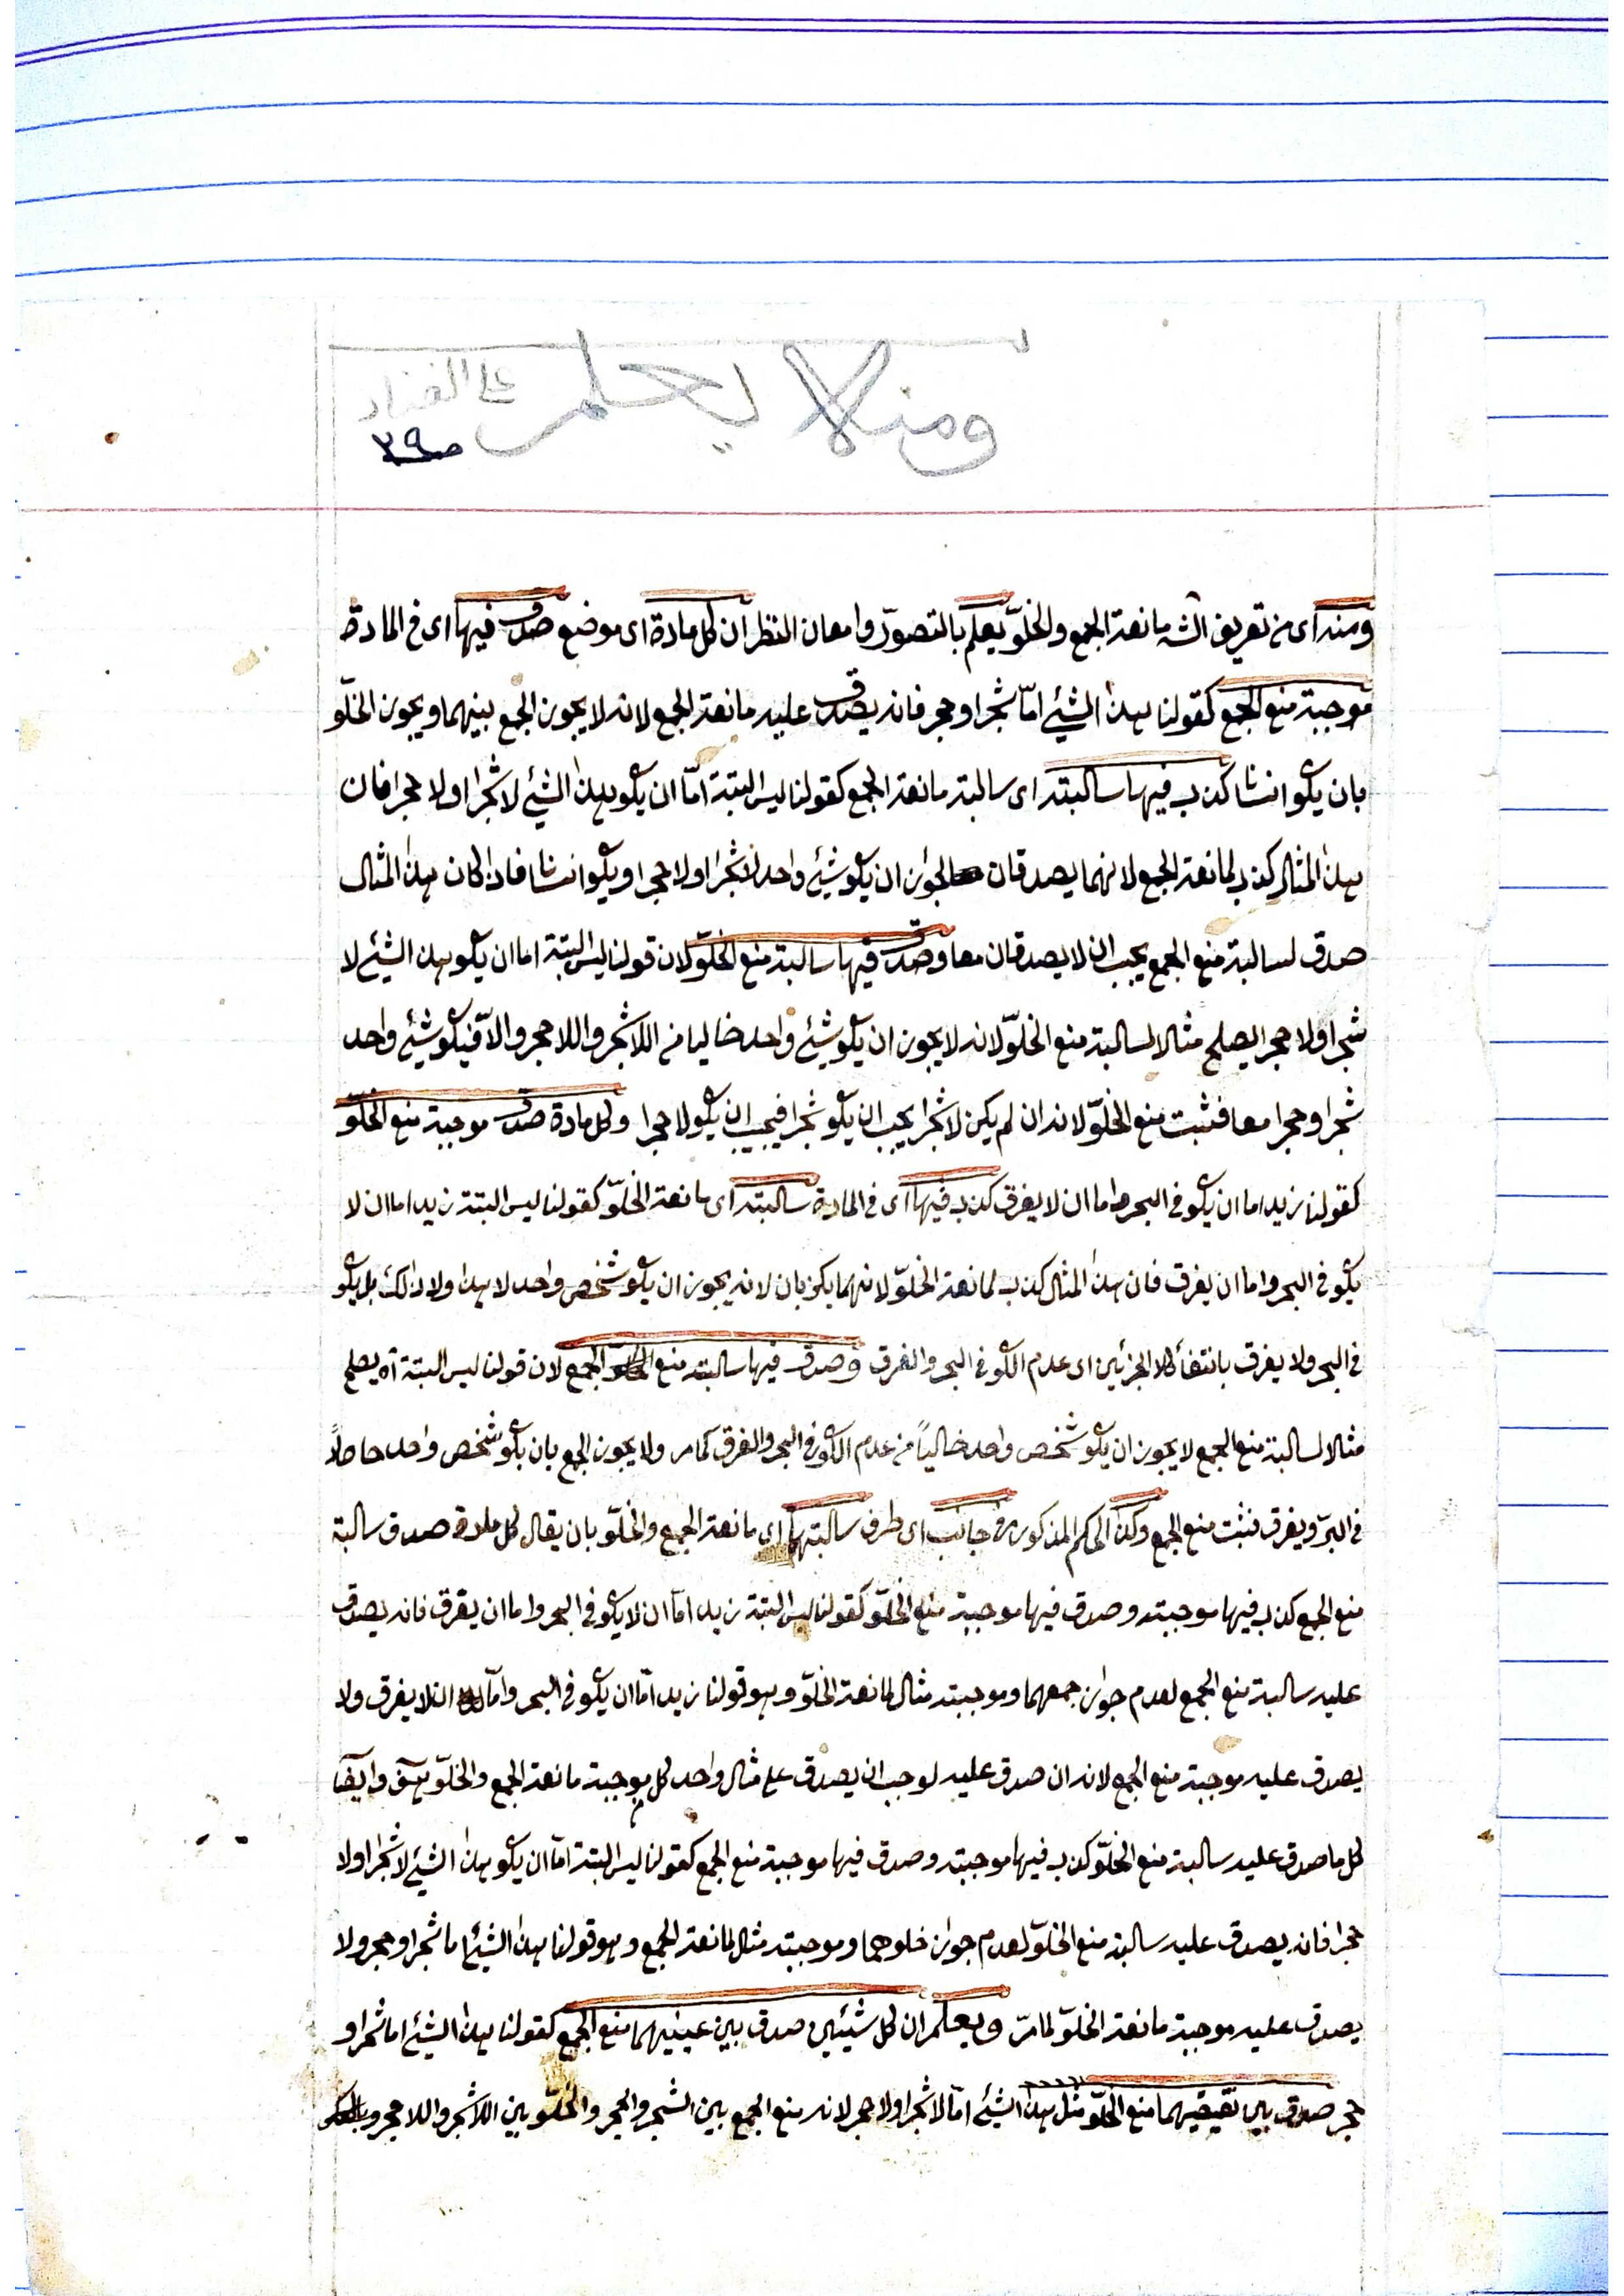 ومنه لا يعلم على الفناري
ص٣٩
ومنه اى من تعريف الشه مانعة الجمع والخلوّ يعلم بالتصوّر وامعان النظر ان كل مادة اى موضع صدق فيها اى فى المادة
موجبة منع الجمع كقولنا هذا الشيئ امّا شجر او حجر فانه يصدق عليه مانعة الجمع لانه لا يجوز الجمع بينهما ويجوز الخلّو
بان يكو انسانا كذب فيها سالبته اى سالبة مانعة الجمع كقولنا ليس البتة امّا ان يكو هذا الشيئ لا شجرا ولا حجرا فان
هذا المثال كذب لمانعة الجمع لانهما يصدقان لجواز ان يكو شيئ واحد لا شجرا ولا حجرا ويكو انسانا فاذا كان هذا المثال
صدق لسالبة منع الجمع يجب ان لا يصدقان معا وصدق فيها سالبة منع الخلوّ لان قولنا ليس البتة اما ان يكو هذا الشيئ لا
شجرا ولا حجر ا يصلح مثالا لسالبة منع الخلوّ لانه لا يجوز ان يكو شيئ واحد خاليا من اللاشجر واللاحجر والاّ فيكو شيئ واحد
شجرا وحجرا معا فثبت منع الخلوّ لانه ان لم يكن لا شجرا يجب ان يكو شجرا فيجب ان يكو لا حجرا وكل مادة صدق موجبة منع الخلوّ
كقولنا زيد اما ان يكو فى البحر واما ان لا يغرق كذب فيها اى فى المادة سالبته اى مانعة الخلوّ كقولنا ليس البتة زيد اما ان لا
يكو فى البحر واما ان يغرق فان هذا المثال كذب لمانعة الخلوّ لانهما يكذبان لانه يجوز ان يكو شخص واحد لا هذا ولا ذالك بل يكو
فى البحر ولا يغرق بانتفأ كلا الجزئين اى عدم الكو فى البحر والغرق وصدق فيها سالبته منع الجمع لان قولنا ليس البتة آه يصلح
مثالا لسالبة منع الجمع لا يجوز ان يكو شخص واحد خالياً من عدم الكو فى البحر والغرق كما مر ولا يجوز الجمع بان يكو شخص واحد حاصلاً
فى البرّ ويغرق فثبت منع الجمع وكذا الحكم المذكور فى جانب اى طرف سالبتهما اى مانعة الجمع والخلوّ بان يقال كل مادة صدق سالبة
منع الجمع كذب فيها موجبته وصدق فيها موجبة منع الخلوّ كقولنا ليس البتة زيد امّا ان لا يكو فى البحر واما ان يغرق فانه يصدق
عليه سالبة منع الجمع لعدم جواز جمعهما وموجبته مثال لمانعة الخلوّ وهو قولنا زيد امّا ان يكو فى البحر وامّا ان لا يغرق ولا
يصدق عليه موجبة منع الجمع لانه ان صدق عليه لوجب ان يصدق على مثال واحد كل موجبة مانعة الجمع والخلوّ هف وايضا
كل ما صدق عليه سالبة منع الخلوّ كذب فيها موجبته وصدق فيها موجبة منع الجمع كقولنا ليس البتة امّا ان يكو هذا الشيئ لا شجرا ولا
حجرا فانه يصدق عليه سالبة منع الخلوّ لعدم جواز خلوهما وموجبته مثال لمانعة الجمع وهو قولنا هذا الشيئ اما شجر او حجر ولا
يصدق عليه موجبة مانعة الخلوّ لما مرّ ويعلم ان كل شيئين صدق بين عينيهما منع الجمع كقولنا هذا الشيئ اما شجر او
حجر صدق بين نقيضيهما منع الخلوّ مثل هذا الشيئ امّا لا شجر او لا حجر لانه منع الجمع بين الشجر والحجر والخلوّ بين اللاشجر واللاحجر وبالعكس